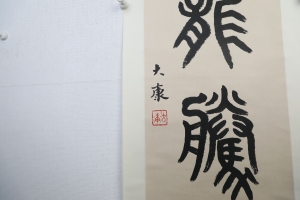 龍騰
大康